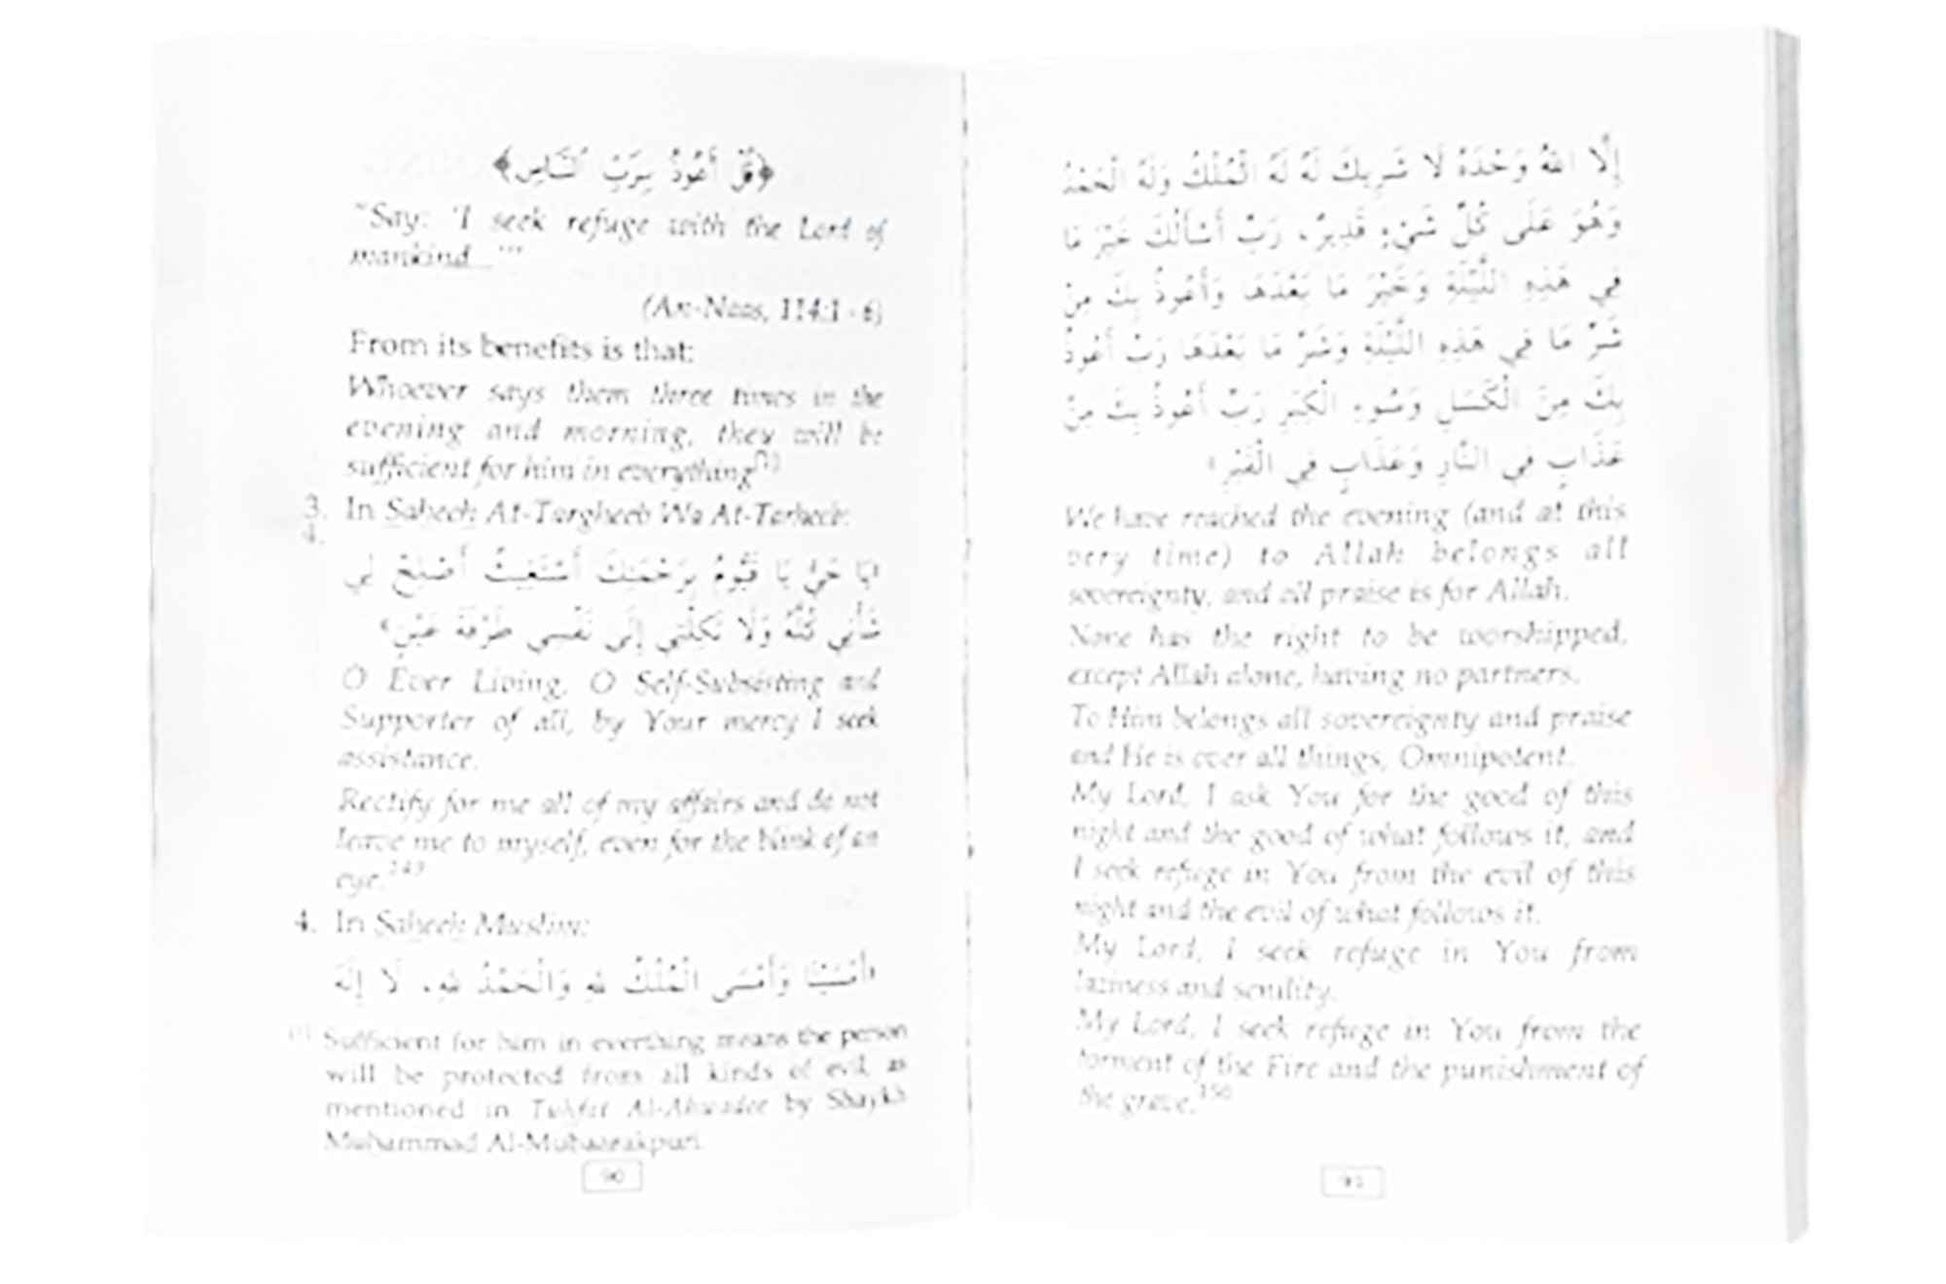 ﴿قُلْ أَعُوذُ بِرَبِّ ٱلنَّاسِ﴾
"Say: 'I seek refuge with the Lord of
mankind...'"
(An-Naas, 114:1 - 6)
From its benefits is that:
Whoever says them three times in the
evening and morning, they will be
sufficient for him in everything[1]
3. In Saheeh At-Targheeb Wa At-Tarheeb:
4.
«يَا حَيُّ يَا قَيُّومُ بِرَحْمَتِكَ أَسْتَغِيثُ أَصْلِحْ لِي
شَأْنِي كُلَّهُ وَلَا تَكِلْنِي إِلَى نَفْسِي طَرْفَةَ عَيْنٍ»
O Ever Living, O Self-Subsisting and
Supporter of all, by Your mercy I seek
assistance.
Rectify for me all of my affairs and do not
leave me to myself, even for the blink of an
eye.149
4. In Saheeh Muslim:
«أَمْسَيْنَا وَأَمْسَى الْمُلْكُ لِلهِ وَالْحَمْدُ لِلهِ، لَا إِلَهَ
[1] Sufficient for him in everthing means the person
will be protected from all kinds of evil, as
mentioned in Tuhfat Al-Ahwadee by Shaykh
Muhammad Al-Mubaarakpuri.
90
إِلَّا اللهُ وَحْدَهُ لَا شَرِيكَ لَهُ لَهُ الْمُلْكُ وَلَهُ الْحَمْدُ
وَهُوَ عَلَى كُلِّ شَيْءٍ قَدِيرٌ، رَبِّ أَسْأَلُكَ خَيْرَ مَا
فِي هَذِهِ اللَّيْلَةِ وَخَيْرَ مَا بَعْدَهَا وَأَعُوذُ بِكَ مِنْ
شَرِّ مَا فِي هَذِهِ اللَّيْلَةِ وَشَرِّ مَا بَعْدَهَا رَبِّ أَعُوذُ
بِكَ مِنَ الْكَسَلِ وَسُوءِ الْكِبَرِ رَبِّ أَعُوذُ بِكَ مِنْ
عَذَابٍ فِي النَّارِ وَعَذَابٍ فِي الْقَبْرِ»
We have reached the evening (and at this
very time) to Allah belongs all
sovereignty, and all praise is for Allah.
None has the right to be worshipped,
except Allah alone, having no partners.
To Him belongs all sovereignty and praise
and He is over all things, Omnipotent.
My Lord, I ask You for the good of this
night and the good of what follows it, and
I seek refuge in You from the evil of this
night and the evil of what follows it.
My Lord, I seek refuge in You from
laziness and senility.
My Lord, I seek refuge in You from the
torment of the Fire and the punishment of
the grave.150
91